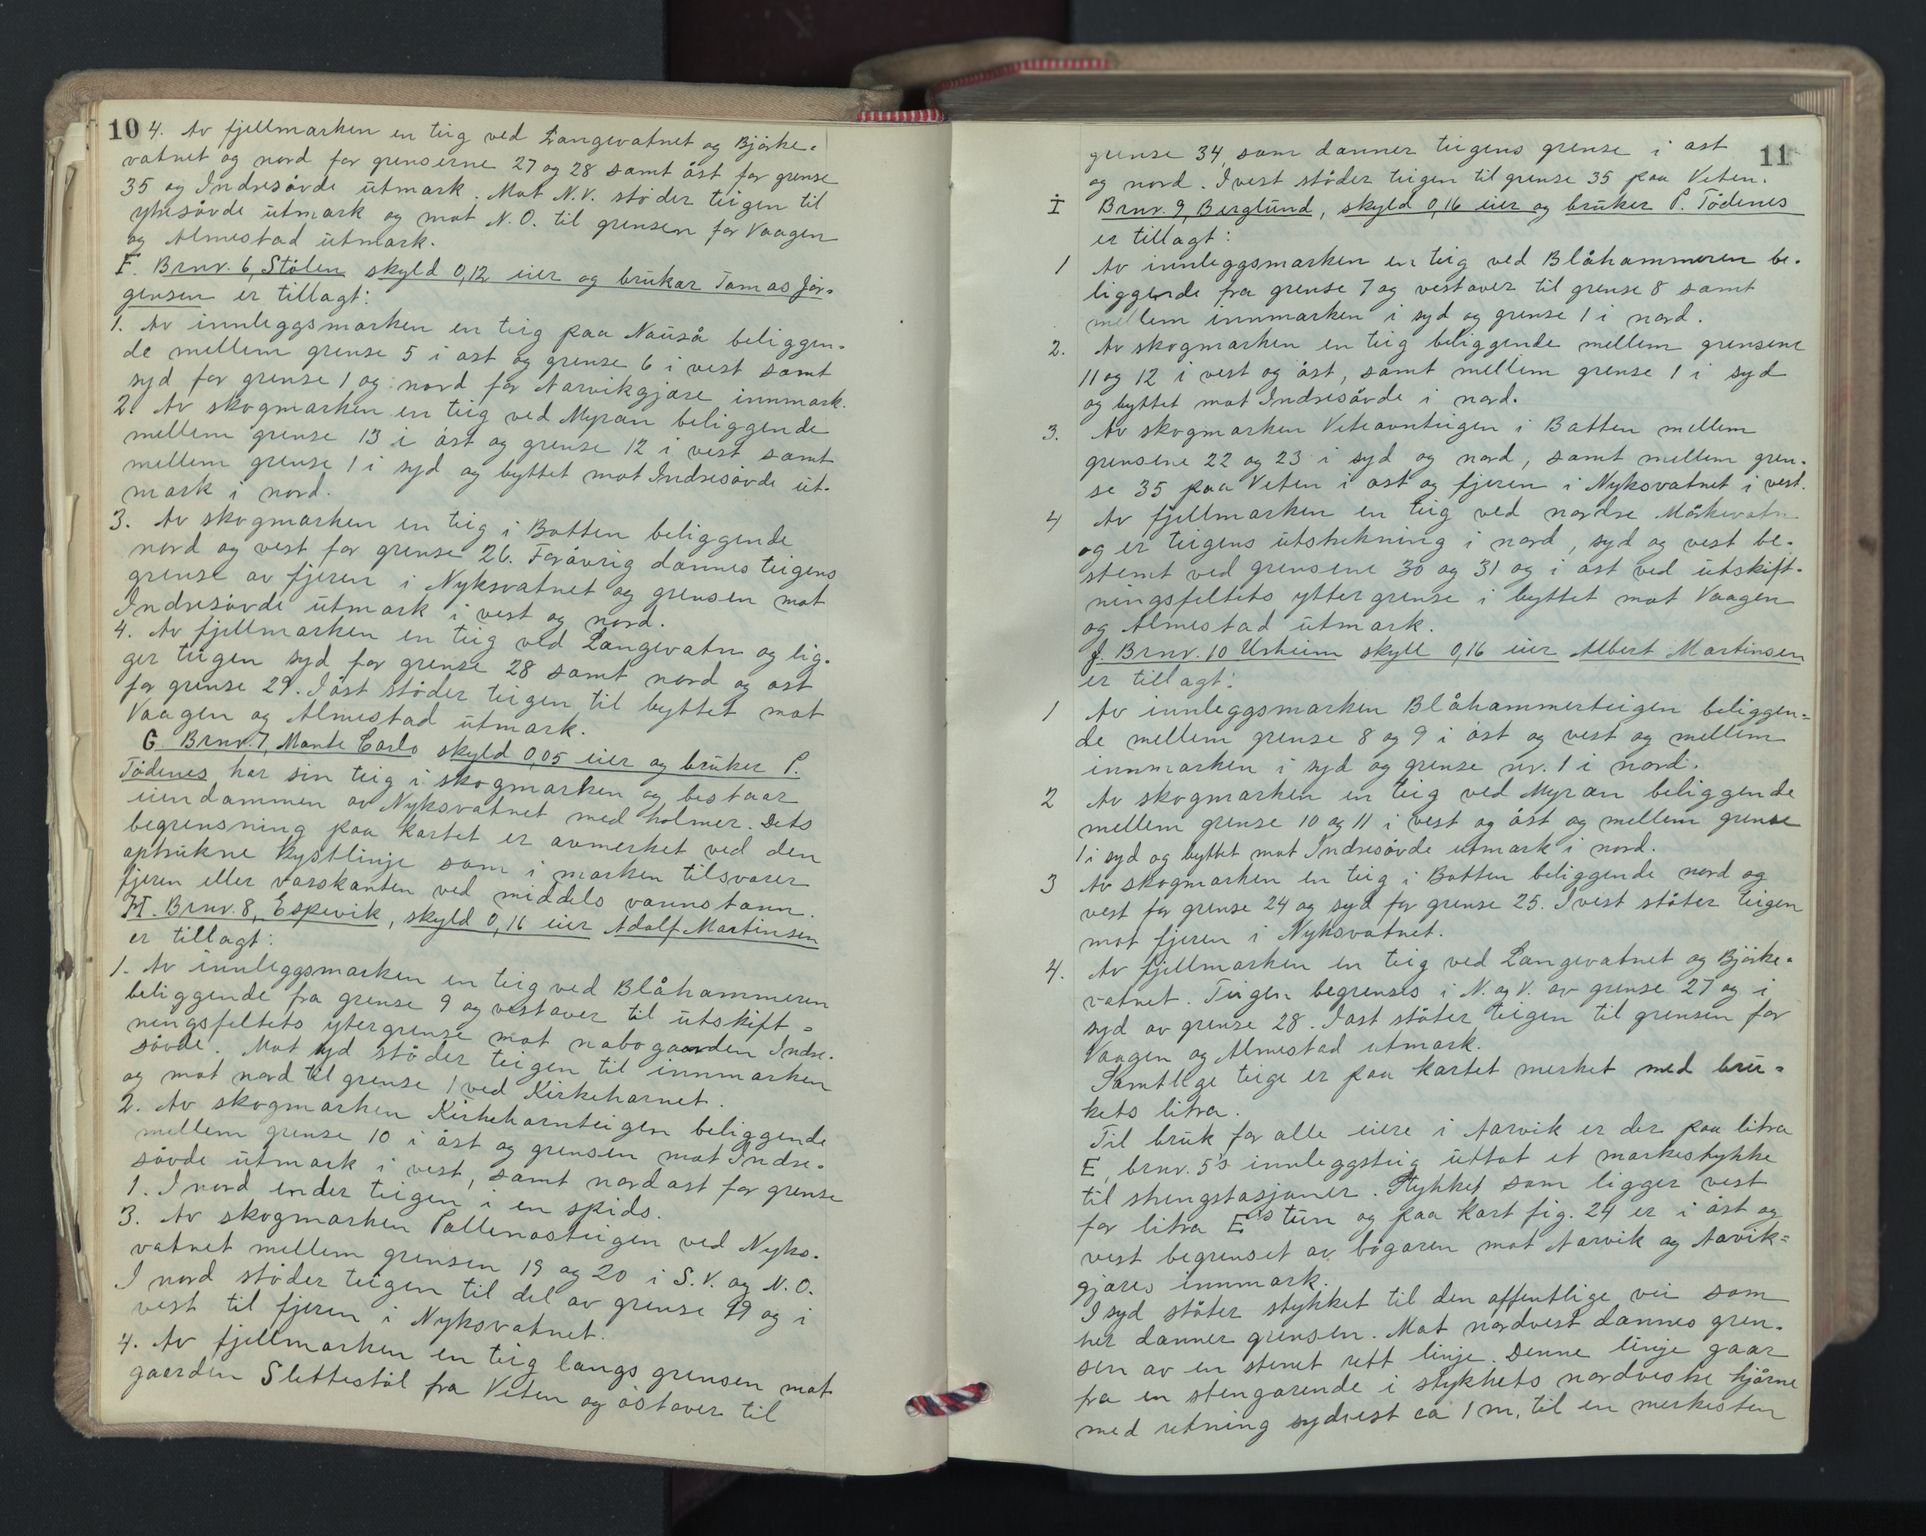 10 4. Av fjellmarken en teig ved Langevatnet og Björke-
vatnet og nord for grenserne 27 og 28 samt öst for grense
35 og Indresövde utmark. Mot N.V. stöder teigen til
ytresövde utmark og mot N.O. til grensen for Vaagen
og Almestad utmark.
F. Brnr. 6, Stölen skyld 0,12 eier og brukar Tomas Jör-
gensen er tillagt:
1. Av innleggsmarken en teig paa Nauså beliggen-
de mellem grense 5 i öst og grense 6 i vest samt
syd for grense 1 og nord for Aarvikgjære innmark.
2. Av skogmarken en teig ved Myran beliggende
mellem grense 13 i öst og grense 12 i vest samt
mellem grense 1 i syd og byttet mot Indresövde ut-
mark i nord.
3. Av skogmarken en teig i Botten beliggende
nord og vest for grense 26. Forövrig dannes teigens
grense av fjeren i Nyksvatnet og grensen mot
Indresövde utmark i vest og nord.
4. Av fjellmarken en teig ved Langevatn og lig-
ger teigen syd for grense 28 samt nord og öst
for grense 29. I öst stöder teigen til byttet mot
Vaagen og Almestad utmark.
G. Brnr. 7, Monte Carlo skyld 0,05 eier og bruker P.
Tödenes har sin teig i skogmarken og bestaar
eiendommen av Nyksvatnet med holmer. Dets
begrensning paa kartet er avmerket ved den
optrukne kystlinje som i marken tilsvarer
fjeren eller vasskanten ved middels vannstann.
H. Brnr. 8, Espevik, skyld 0,16 eier Adolf Martinsen
er tillagt:
1. Av innleggsmarken en teig ved Blåhammeren
beliggende fra grense 9 og vestover til utskift-
ningsfeltets ytergrense mot nabogaarden Indre-
sövde. Mot syd stöder teigen til innmarken
og mot nord til grense 1 ved Kirkehornet.
2. Av skogmarken Kirkehornteigen beliggende
mellem grense 10 i öst og grensen mot Indre-
sövde utmark i vest, samt nordost for grense
1. I nord ender teigen i en spids.
3. Av skogmarken Pallenosteigen ved Nyks-
vatnet mellem grensen 19 og 20 i S.V. og N.O.
I nord stöder teigen til del av grense 19 og i
vest til fjeren i Nyksvatnet.
4. Av fjellmarken en teig langs grensen mot
gaarden Slettestöl fra Veten og östover til
11
grense 34, som danner teigens grense i öst
og nord. I vest stöder teigen til grense 35 paa Veten.
I Brnr. 9, Berglund, skyld 0,16 eier og bruker P. Tödenes
er tillagt:
1 Av innleggsmarken en teig ved Blåhammeren be-
liggende fra grense 7 og vestover til grense 8 samt
mellem innmarken i syd og grense 1 i nord.
2. Av skogmarken en teig beliggende mellem grensene
11 og 12 i vest og öst, samt mellem grense 1 i syd
og byttet mot Indresövde i nord.
3. Av skogmarken Veteavnteigen i Botten mellem
grensene 22 og 23 i syd og nord, samt mellem gren-
se 35 paa Veten i öst og fjeren i Nyksvatnet i vest.
4 Av fjellmarken en teig ved nordre Mörkevatn
og er teigens utstrekning i nord, syd og vest be-
stemt ved grensene 30 og 31 og i öst ved utskift-
ningsfeltets yttergrense i byttet mot Vaagen
og Almestad utmark.
J. Brnr. 10 Urheim skyll 0,16 eier Albert Martinsen
er tillagt:
1 Av innleggsmarken Blåhammerteigen beliggen-
de mellem grense 8 og 9 i öst og vest og mellem
innmarken i syd og grense nr. 1 i nord.
2 Av skogmarken en teig ved Myran beliggende
mellem grense 10 og 11 i vest og öst og mellem grense
1 i syd og byttet mot Indresövde utmark i nord.
3 Av skogmarken en teig i Botten beliggende nord og
vest for grense 24 og syd for grense 25. I vest stöter teigen
mot fjeren i Nyksvatnet.
4. Av fjellmarken en teig ved Langevatnet og Björke-
vatnet. Teigen begrenses i N. og V. av grense 27 og i
syd av grense 28. I öst stöter teigen til grensen for
Vaagen og Almestad utmark.
Samtlige teige er paa kartet merket med bru-
kets litra.
Til bruk for alle eiere i Aarvik er der paa litra
E, brnr. 5's innleggsteig uttat et markestykke
til stengstasjoner. Stykket som ligger vest
for litra E's tun og paa kart fig. 24 er i öst og
vest begrenset av bögaren mot Aarvik og Aavik-
gjæres innmark.
I syd stöter stykket til den offentlige vei som
her danner grensen. Mot nordvest dannes gren-
sen av en stenet rett linje. Denne linje gaar
fra en stengarende i stykkets nordveste hjörne
med retning sydvest ca 1 m. til en merkesten